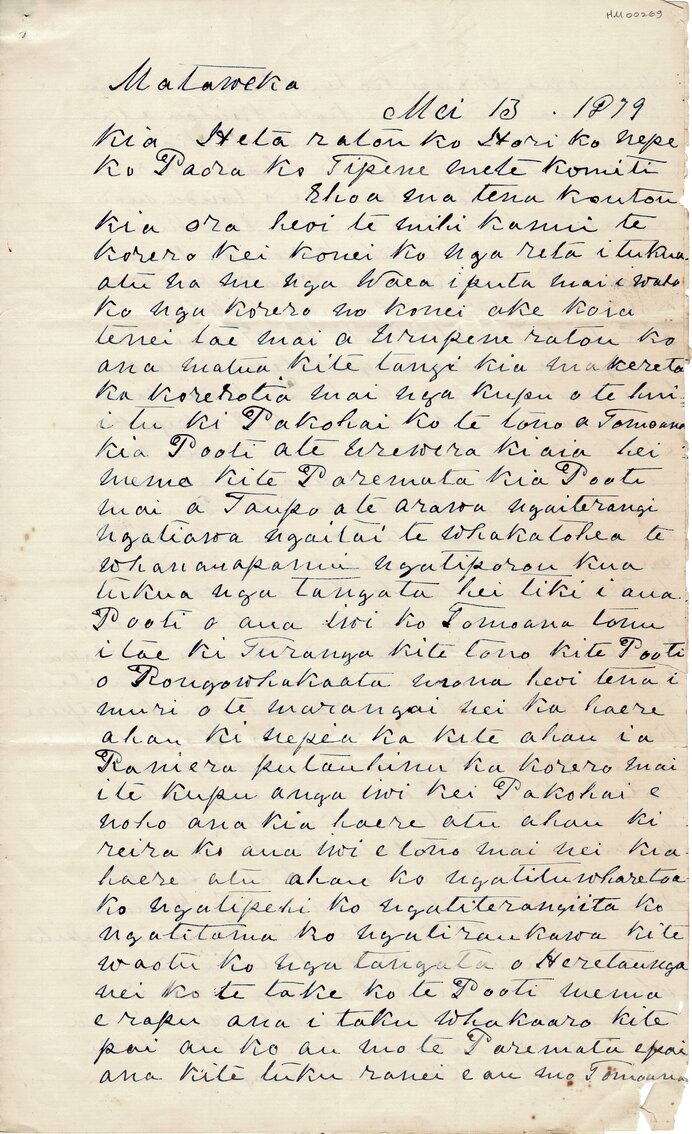 HM00269
Mataweka
Mei 13 . 1879
kia Heta ratou ko Hori ko nepe
ko Paora ko Tipene mete komiti
Ehoa ma tena koutou
kia ora heoi te mihi kanui te
korero kei konei ko nga reta i tukua
atu na me nga Waea i puta mai i waho
ko nga korero no konei ake koia
tenei tae mai a Urupene ratou ko
ana matua kite tangi kia makereta
ka korerotia mai nga kupu o te hui
i tu ki Pakohai ko te tono a Tomoana
kia Pooti ate Urewera kiaia hei
mema kite Paremata kia Pooti
mai a Taupo ate arawa ngaiterangi
ngatiawa ngaitai te whakatohea te
whanauapanui ngatiporou kua
tukua nga tangata hei tiki i ana
Pooti o ana iwi ko Tomoana tonu
i tae ki Turanga kite tono kite Pooti
o Rongowhakaata mona heoi tena i
muri o te marangai nei ka haere
ahau ki nepia ka kite ahau i a
Raniera putauhinu ka korero mai
i te kupu anga iwi kei Pakohai e
noho ana kia haere atu ahau ki
reira ko ana iwi e tono mai nei kia
haere atu ahau ko ngatituwharetoa
ko ngatipehi ko ngatiterangiita ko
ngatitama ko ngatiraukawa kite
waotu ko nga tangata o Heretaunga
nei ko te take ko te Pooti mema
e rapu ana i taku whakaaro kite
pai au ko au mo te Paremata epai
ana kite tuku ranei e au mo Tomoana